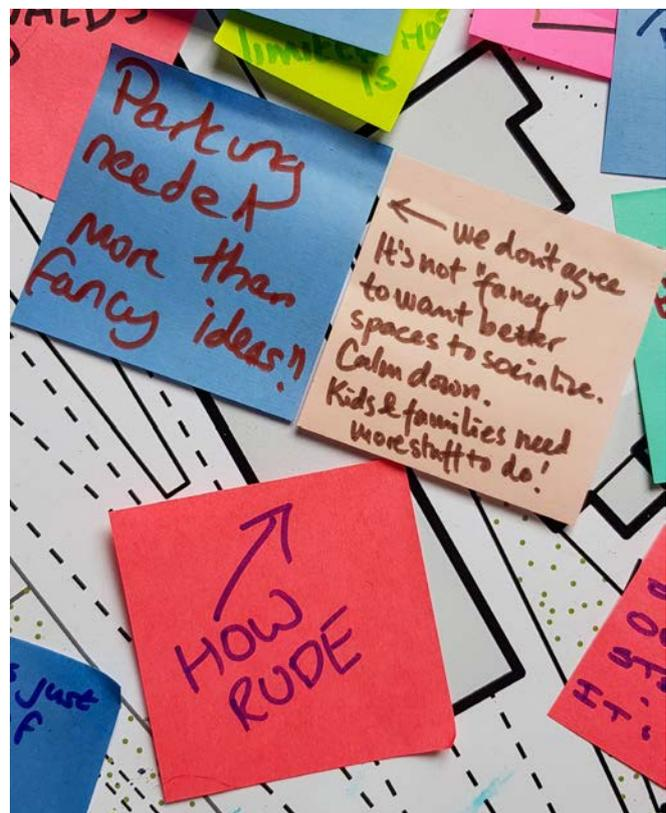 Parking
needed
more than
fancy ideas!!
← we don't agree
It's not "fancy"
to want better
spaces to socialize.
Calm down.
Kids & families need
more stuff to do!
HOW
RUDE
just